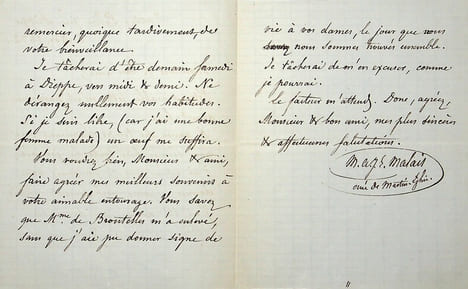 remercier, quoique tardivement, de
votre bienveillance.
Je tâcherai d'être demain samedi
à Dieppe, vers midi & demi. Ne
dérangez nullement vos habitudes.
Si je suis libre, (car j'ai une bonne
femme malade) un œuf me suffira.
Vous voudrez bien, Monsieur & ami,
faire agréer mes meilleurs souvenirs à
votre aimable entourage. Vous savez
que Mme de Broutelles m'a enlevé,
sans que j'aie pu donner signe de
vie à vos dames, le jour que nous
nous sommes trouvés ensemble.
Je tâcherai de m'en excuser, comme
je pourrai.
Le facteur m'attend. Donc, agréez,
Monsieur & bon ami, mes plus sincères
& affectueuses salutations.
Malais
curé de Martin-Église.